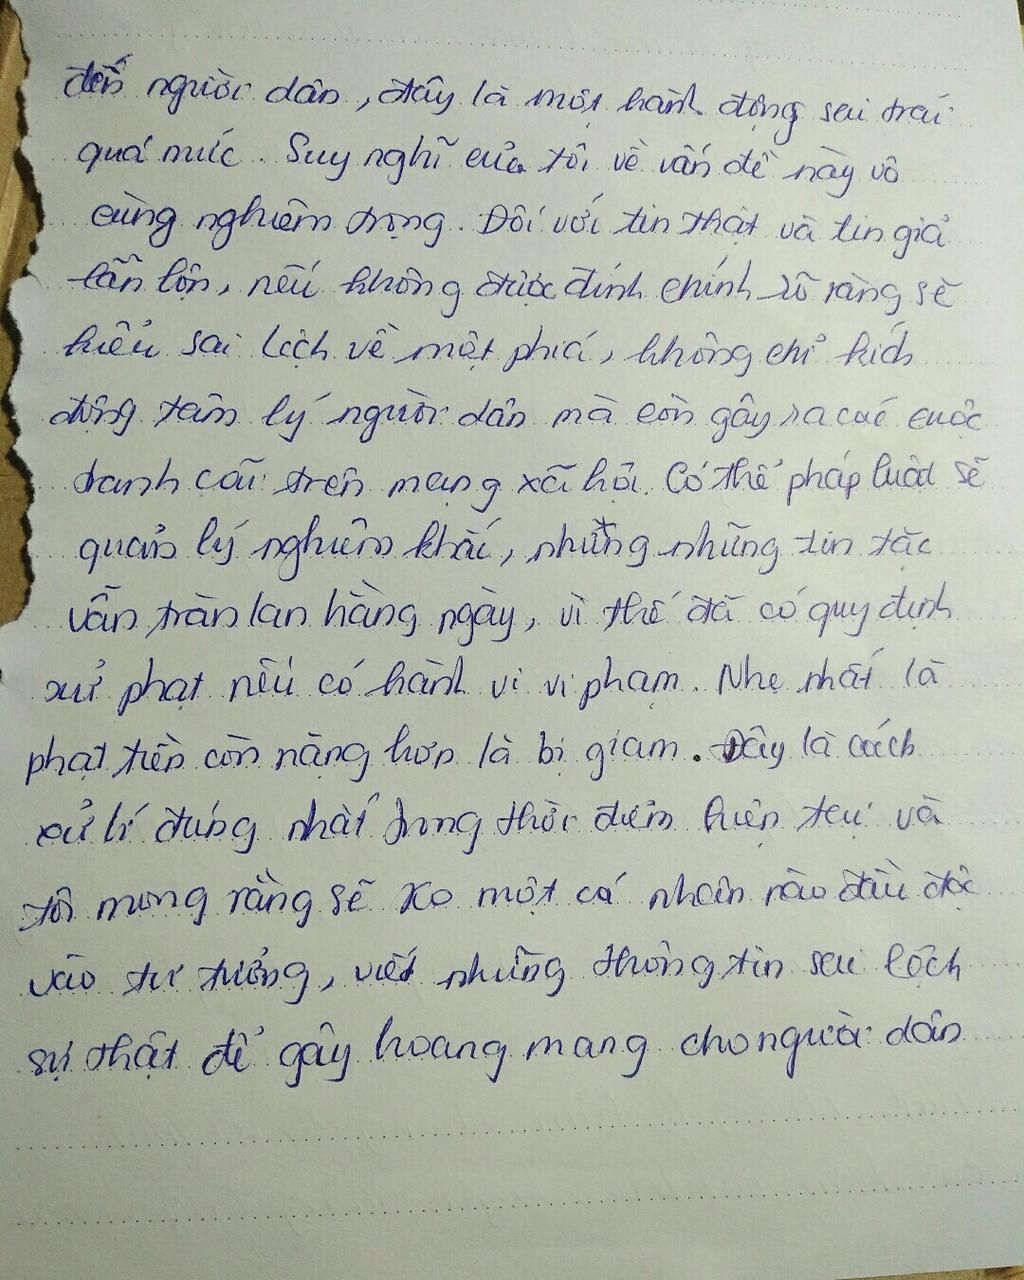 đến người dân, đây là một hành động sai trái
quá mức. Suy nghĩ của tôi về vấn đề này vô
cùng nghiêm trọng. Đối với tin thật và tin giả
lẫn lộn, nếu không được đính chính rõ ràng sẽ
hiểu sai lệch về một phía, không chỉ kích
động tâm lý người dân mà còn gây ra các cuộc
tranh cãi trên mạng xã hội. Có thể pháp luật sẽ
quản lý nghiêm khắc, nhưng những tin tặc
vẫn tràn lan hàng ngày, vì thế đã có quy định
xử phạt nếu có hành vi vi phạm. Nhẹ nhất là
phạt tiền còn nặng hơn là bị giam. Đây là cách
xử lí đúng nhất trong thời điểm hiện tại và
tôi mong rằng sẽ ko một cá nhân nào đầu độc
vào tư tưởng, viết những thông tin sai lệch
sự thật để gây hoang mang cho người dân